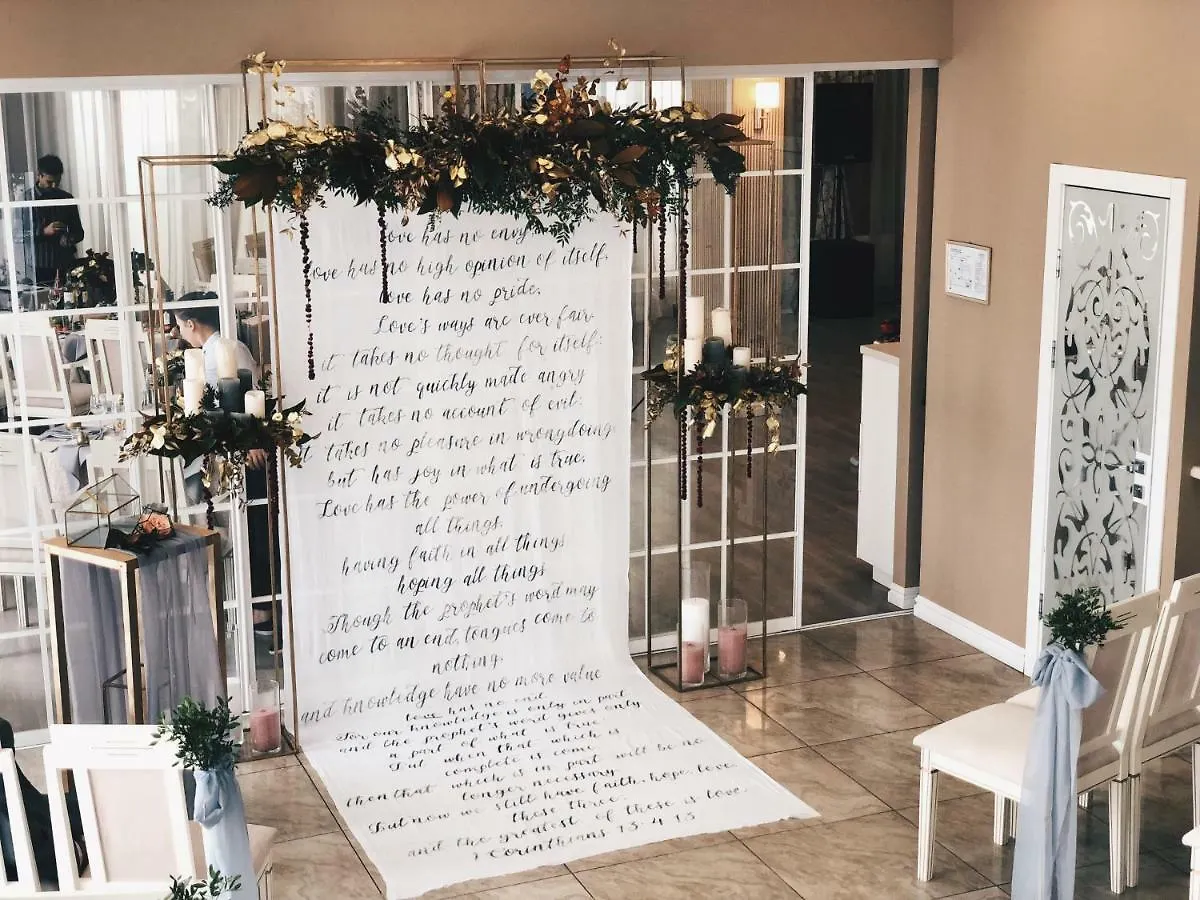 Love has no envy
Love has no high opinion of itself,
Love has no pride;
Love's ways are ever fair
it takes no thought for itself:
it is not quickly made angry
it takes no account of evil:
it takes no pleasure in wrongdoing
but has joy in what is true;
Love has the power of undergoing
all things;
having faith in all things
hoping all things
Though the prophet's word may
come to an end, tongues come to
nothing
and knowledge have no more value
love has no end.
For our knowledge is only in part
and the prophet's word gives only
a part of what is true
But when that which is
complete is come,
then that which is in part will be no
longer necessary.
But now we still have faith, hope, love
these three.
and the greatest of these is love.
1 Corinthians 13:4-13